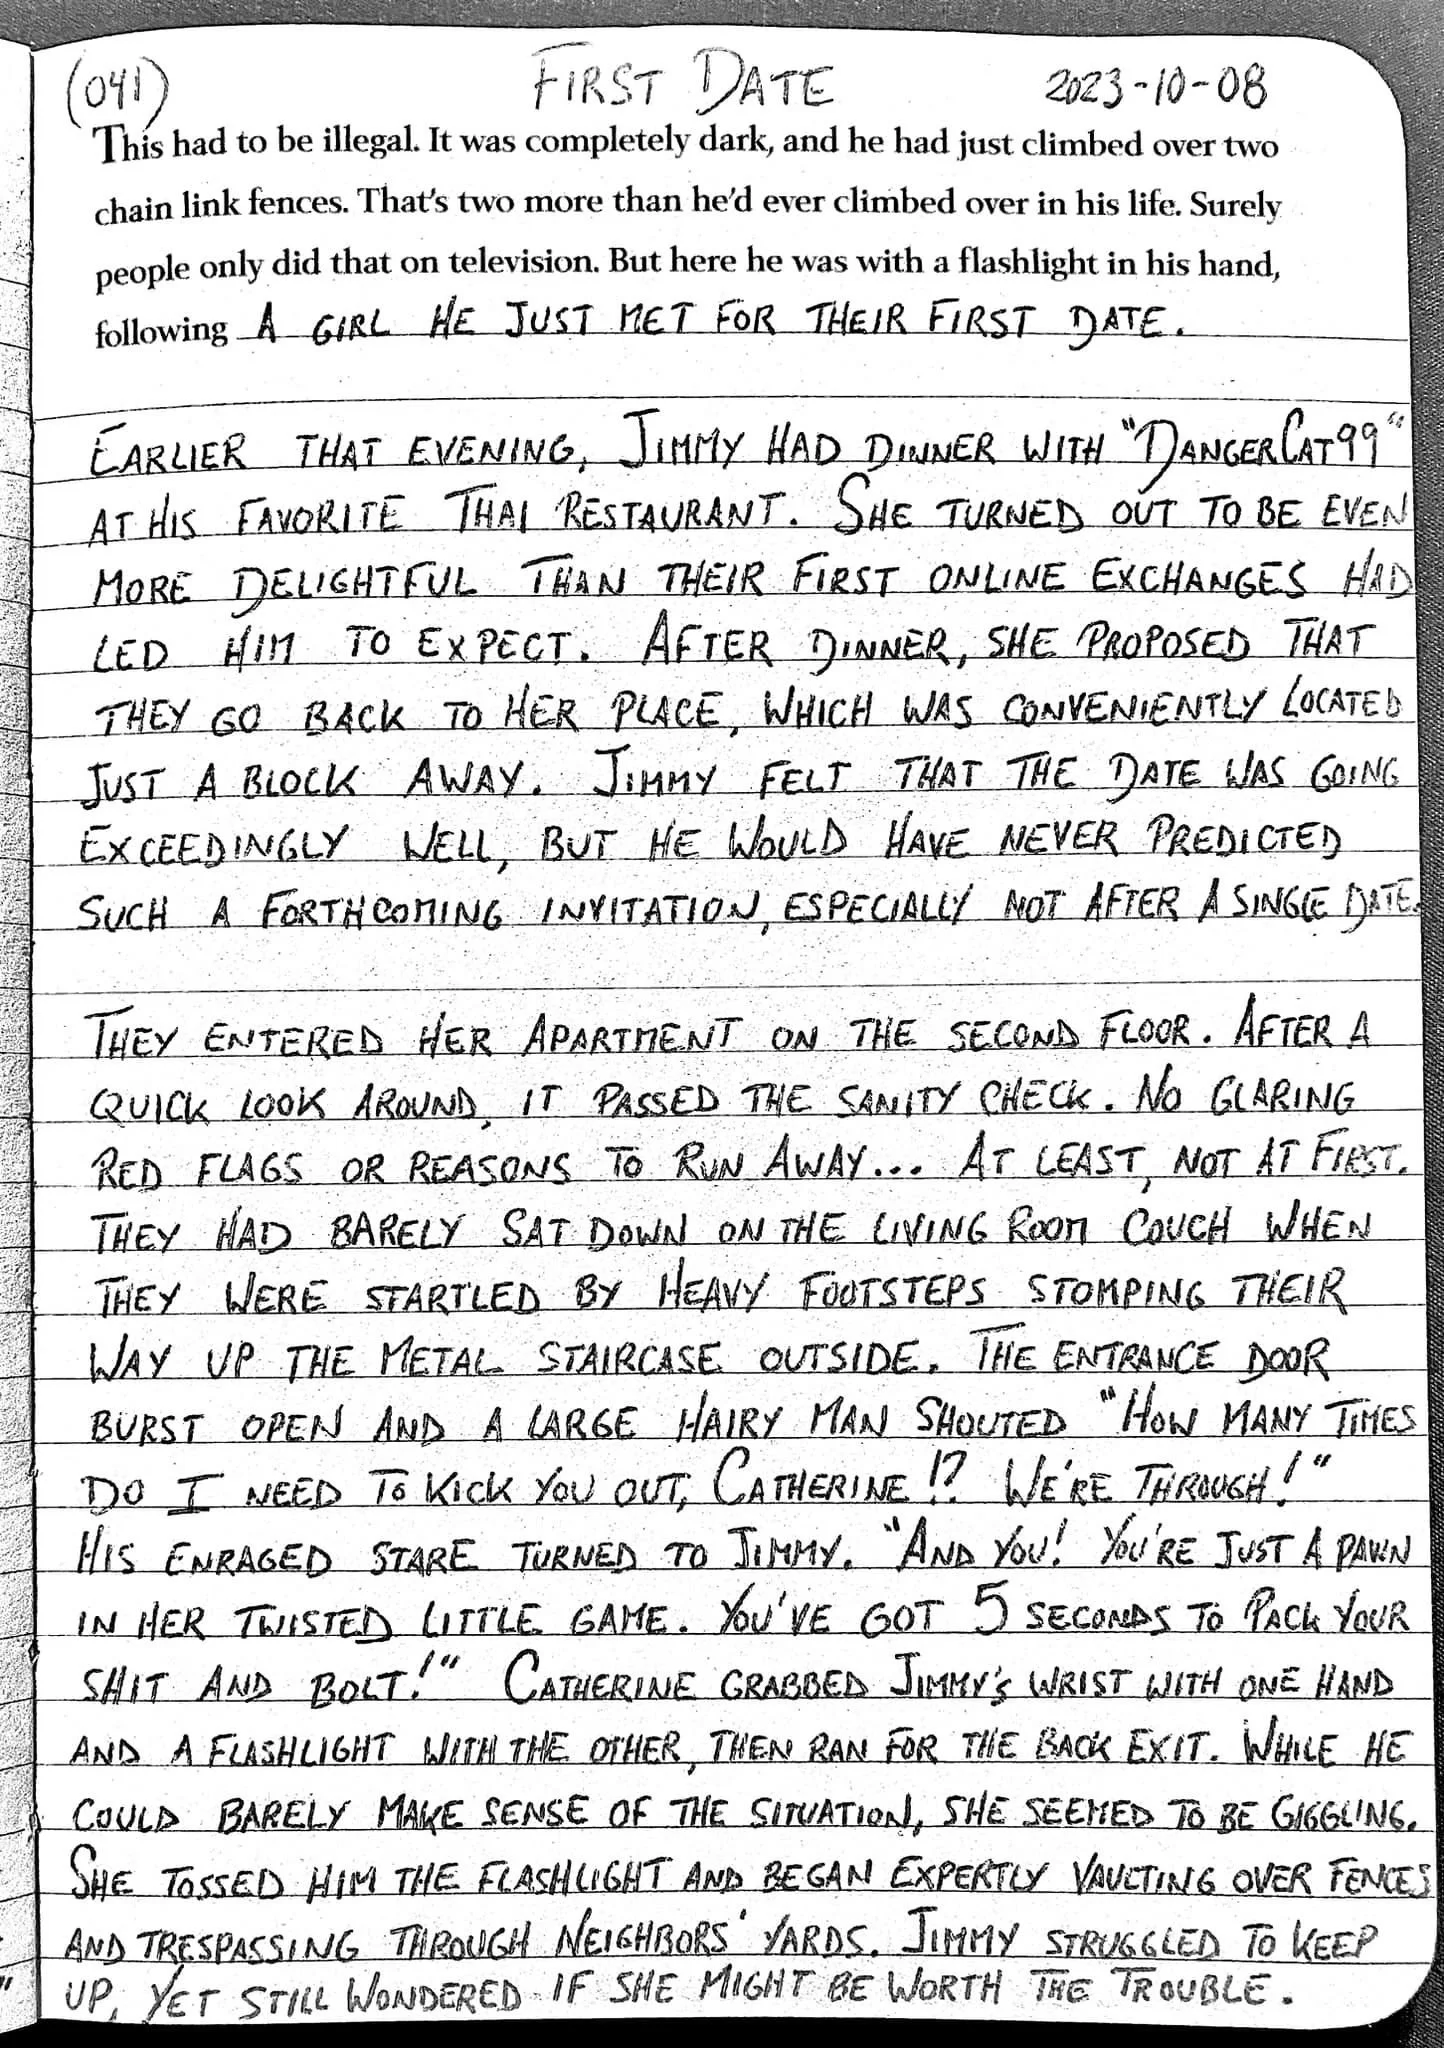 (041) FIRST DATE 2023-10-08
This had to be illegal. It was completely dark, and he had just climbed over two
chain link fences. That's two more than he'd ever climbed over in his life. Surely
people only did that on television. But here he was with a flashlight in his hand,
following A GIRL HE JUST MET FOR THEIR FIRST DATE.
EARLIER THAT EVENING, JIMMY HAD DINNER WITH "DANGERCAT99"
AT HIS FAVORITE THAI RESTAURANT. SHE TURNED OUT TO BE EVEN
MORE DELIGHTFUL THAN THEIR FIRST ONLINE EXCHANGES HAD
LED HIM TO EXPECT. AFTER DINNER, SHE PROPOSED THAT
THEY GO BACK TO HER PLACE, WHICH WAS CONVENIENTLY LOCATED
JUST A BLOCK AWAY. JIMMY FELT THAT THE DATE WAS GOING
EXCEEDINGLY WELL, BUT HE WOULD HAVE NEVER PREDICTED
SUCH A FORTHCOMING INVITATION, ESPECIALLY NOT AFTER A SINGLE DATE.
THEY ENTERED HER APARTMENT ON THE SECOND FLOOR. AFTER A
QUICK LOOK AROUND, IT PASSED THE SANITY CHECK. NO GLARING
RED FLAGS OR REASONS TO RUN AWAY... AT LEAST, NOT AT FIRST.
THEY HAD BARELY SAT DOWN ON THE LIVING ROOM COUCH WHEN
THEY WERE STARTLED BY HEAVY FOOTSTEPS STOMPING THEIR
WAY UP THE METAL STAIRCASE OUTSIDE. THE ENTRANCE DOOR
BURST OPEN AND A LARGE HAIRY MAN SHOUTED "HOW MANY TIMES
DO I NEED TO KICK YOU OUT, CATHERINE!? WE'RE THROUGH!"
HIS ENRAGED STARE TURNED TO JIMMY. "AND YOU! YOU'RE JUST A PAWN
IN HER TWISTED LITTLE GAME. YOU'VE GOT 5 SECONDS TO PACK YOUR
SHIT AND BOLT!" CATHERINE GRABBED JIMMY'S WRIST WITH ONE HAND
AND A FLASHLIGHT WITH THE OTHER, THEN RAN FOR THE BACK EXIT. WHILE HE
COULD BARELY MAKE SENSE OF THE SITUATION, SHE SEEMED TO BE GIGGLING.
SHE TOSSED HIM THE FLASHLIGHT AND BEGAN EXPERTLY VAULTING OVER FENCES
AND TRESPASSING THROUGH NEIGHBORS' YARDS. JIMMY STRUGGLED TO KEEP
UP, YET STILL WONDERED IF SHE MIGHT BE WORTH THE TROUBLE.